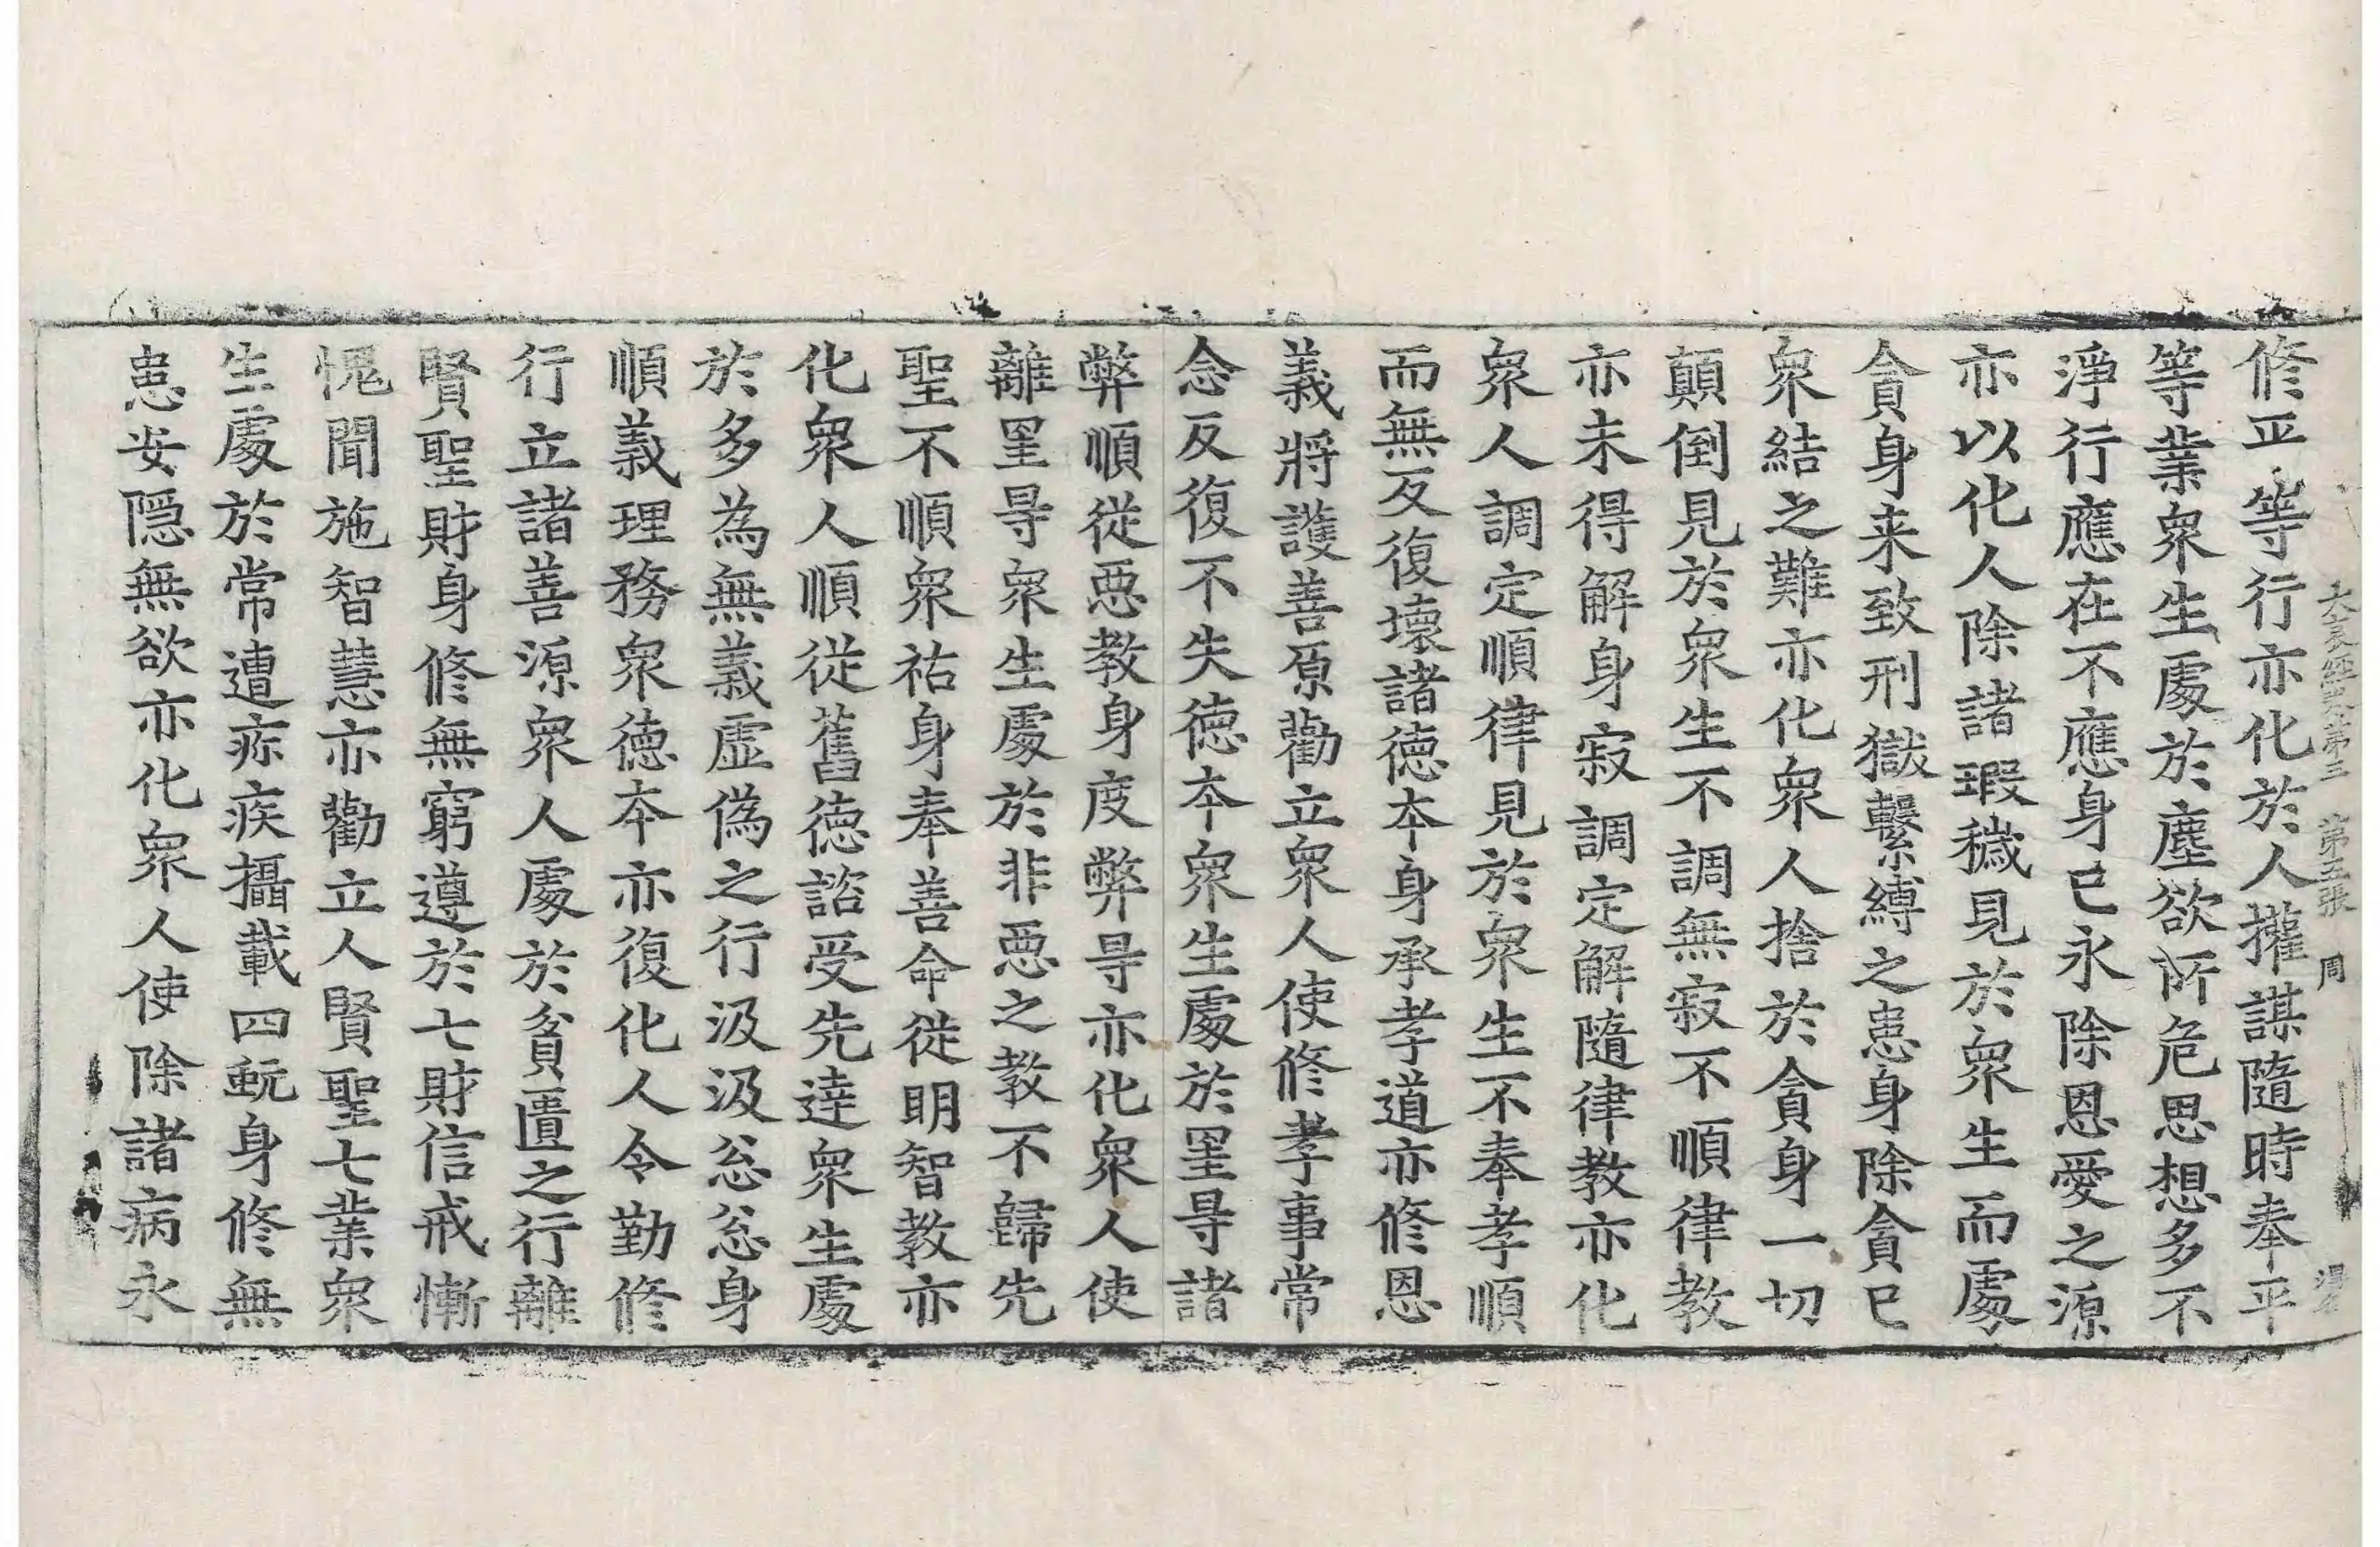 大哀經卷第三 第五張 周
修正等行亦化於人權謀隨時奉平
等業衆生處於塵欲所危思想多不
淨行應在不應身已永除恩愛之源
亦以化人除諸瑕穢見於衆生而處
貪身来致刑獄繫縛之患身除貪已
衆結之難亦化衆人捨於貪身一切
顛倒見於衆生不調無寂不順律教
亦未得解身寂調定解隨律教亦化
衆人調定順律見於衆生不奉孝順
而無反復壞諸德本身承孝道亦修恩
義將護善原勸立衆人使修孝事常
念反復不失德本衆生處於罣㝵諸
弊順從惡教身度弊㝵亦化衆人使
離罣㝵衆生處於非惡之教不歸先
聖不順衆祐身奉善命從明智教亦
化衆人順從舊德諮受先達衆生處
於多為無義虛偽之行汲汲忩忩身
順義理務衆德本亦復化人令勤修
行立諸善源衆人處於貧匱之行離
賢聖財身修無窮遵於七財信戒慚
愧聞施智慧亦勸立人賢聖七業衆
生處於常遭疢疾攝載四蚖身修無
患安隠無欲亦化衆人使除諸病永